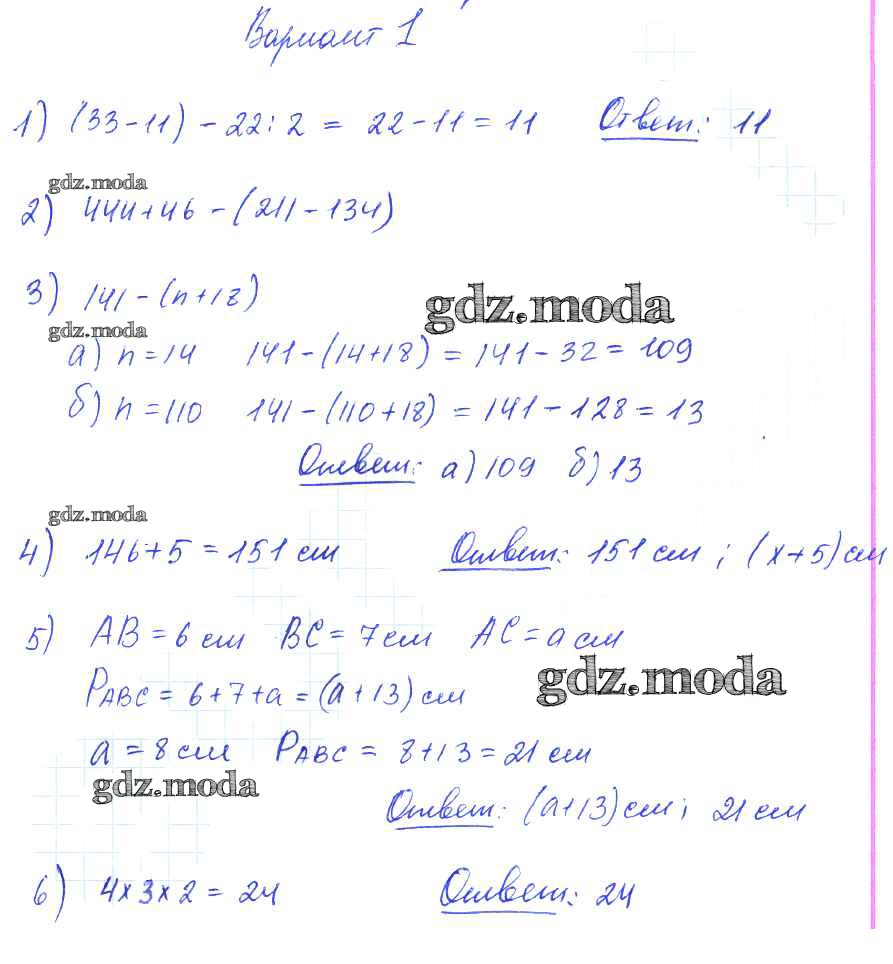 Вариант 1
1) (33-11) - 22:2 = 22-11 = 11 Ответ: 11
gdz.moda
2) 444+46 - (211 - 134)
3) 141 - (n+18)
gdz.moda
gdz.moda
а) n = 14 141 - (14+18) = 141 - 32 = 109
б) n = 110 141 - (110+18) = 141 - 128 = 13
Ответ: а) 109 б) 13
gdz.moda
4) 146+5 = 151 см Ответ: 151 см ; (x+5) см
5) AB = 6 см BC = 7 см AC = a см
gdz.moda
PABC = 6+7+a = (a+13) см
a = 8 см PABC = 8+13 = 21 см
gdz.moda
Ответ: (a+13) см; 21 см
6) 4x3x2 = 24 Ответ: 24